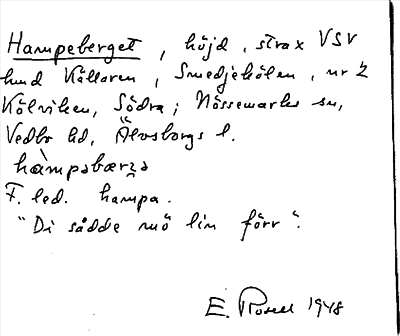 Hampeberget, höjd, strax VSV
hmd Källaren, Smedjehölen, nr 2
Kölviken, Södra; Nössemarks sn,
Vedbo hd, Älvsborgs l.
hàmpəbærɜ̯ə
F. led. hampa.
"Di sådde mö lin förr".
E. Rosell 1948